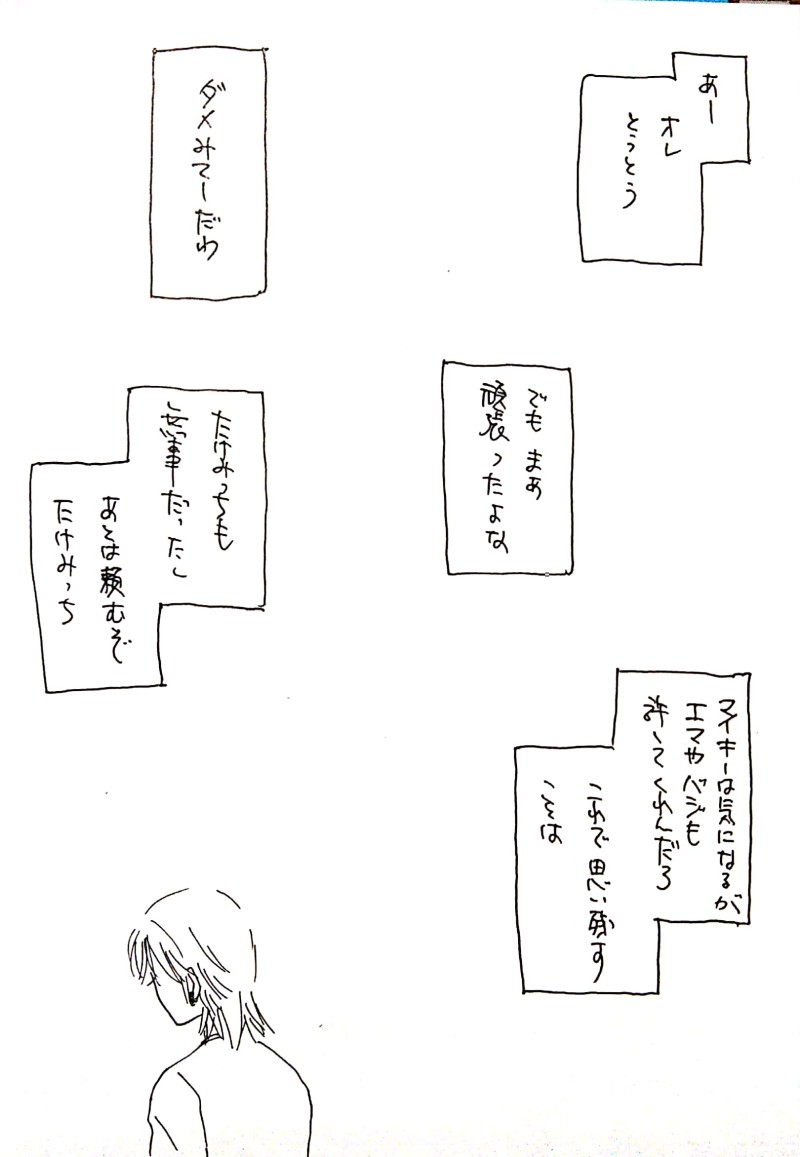 あー
オレ
とうとう
ダメみてーだわ
でも まぁ
頑張ったよな
たけみっちも
無事だったし
あとは頼むぞ
たけみっち
マイキーは気になるが
エマやバジも
許してくれんだろ
これで思い残す
ことは